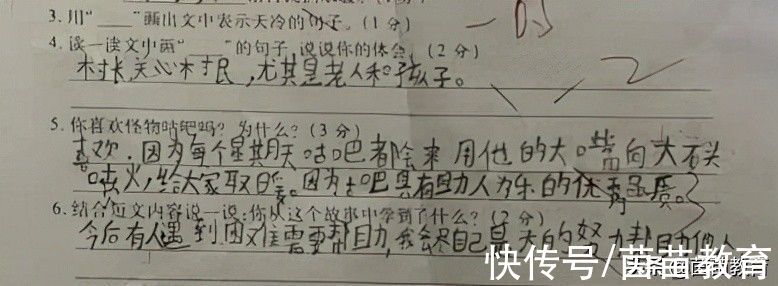 3. 用“____”画出文中表示天冷的句子。(1 分)
4. 读一读文中画“____”的句子,说说你的体会。(2 分)
村长关心村民,尤其是老人和孩子。
5. 你喜欢怪物咕吧吗?为什么?(3 分)
喜欢.因为每个星期天咕吧都会来用他的大嘴向大石头
喷火,给大家取暖。因为土吧具有助人为乐的优秀品质。
6. 结合短文内容说一说:你从这个故事中学到了什么?(2 分)
今后有人遇到困难需要帮助,我会尽自己最大的努力帮助他人
快传号/茵苗教育